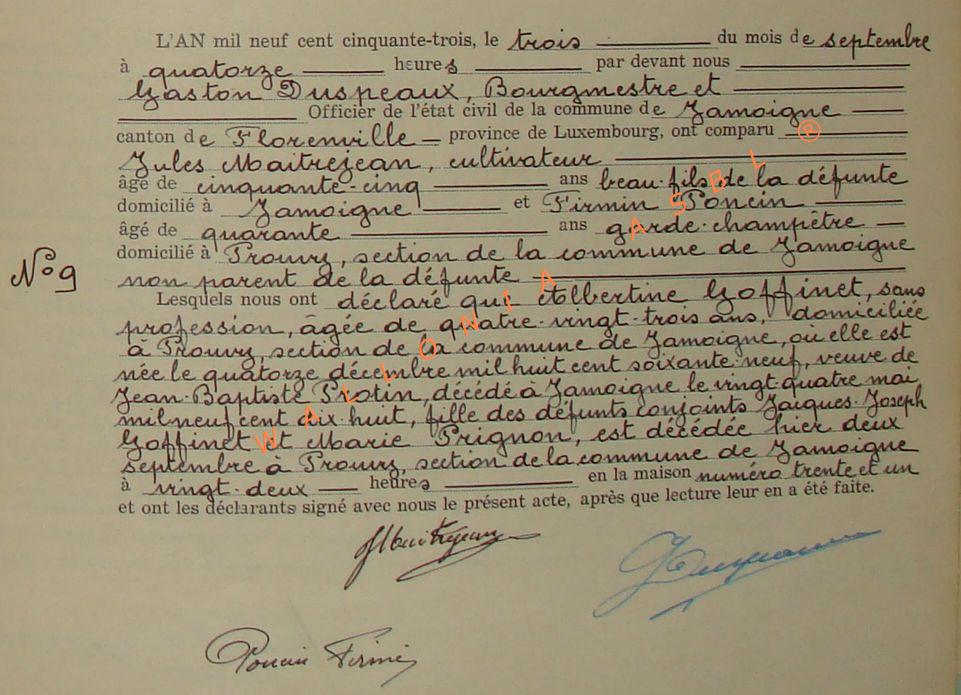 L'AN mil neuf cent cinquante-trois, le trois du mois de septembre
à quatorze heures par devant nous
Gaston Duspeaux, Bourgmestre et
Officier de l'état civil de la commune de Jamoigne
canton de Florenville province de Luxembourg, ont comparu
Jules Maitrejean, cultivateur
âgé de cinquante-cinq ans beau-fils de la défunte
domicilié à Jamoigne et Firmin Poncin
âgé de quarante ans garde-champêtre
domicilié à Prouvy, section de la commune de Jamoigne
N° 9
non parent de la défunte
Lesquels nous ont déclaré que Albertine Goffinet, sans
profession, âgée de quatre-vingt-trois ans, domiciliée
à Prouvy, section de la commune de Jamoigne, où elle est
née le quatorze décembre mil huit cent soixante-neuf, veuve de
Jean-Baptiste Protin, décédé à Jamoigne le vingt-quatre mai
mil neuf cent dix-huit, fille des défunts conjoints Jacques-Joseph
Goffinet et Marie Prignon, est décédée hier deux
septembre à Prouvy, section de la commune de Jamoigne
à vingt-deux heures en la maison numéro trente et un
et ont les déclarants signé avec nous le présent acte, après que lecture leur en a été faite.
JMaitrejean
Poncin Firmin
WALLONIA ASBL ®